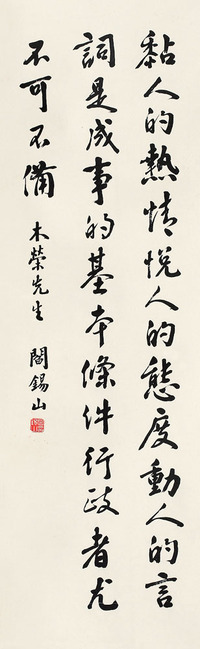 黏人的熱情悅人的態度動人的言
詞是成事的基本條件行政者尤
不可不備
木榮先生 閻錫山